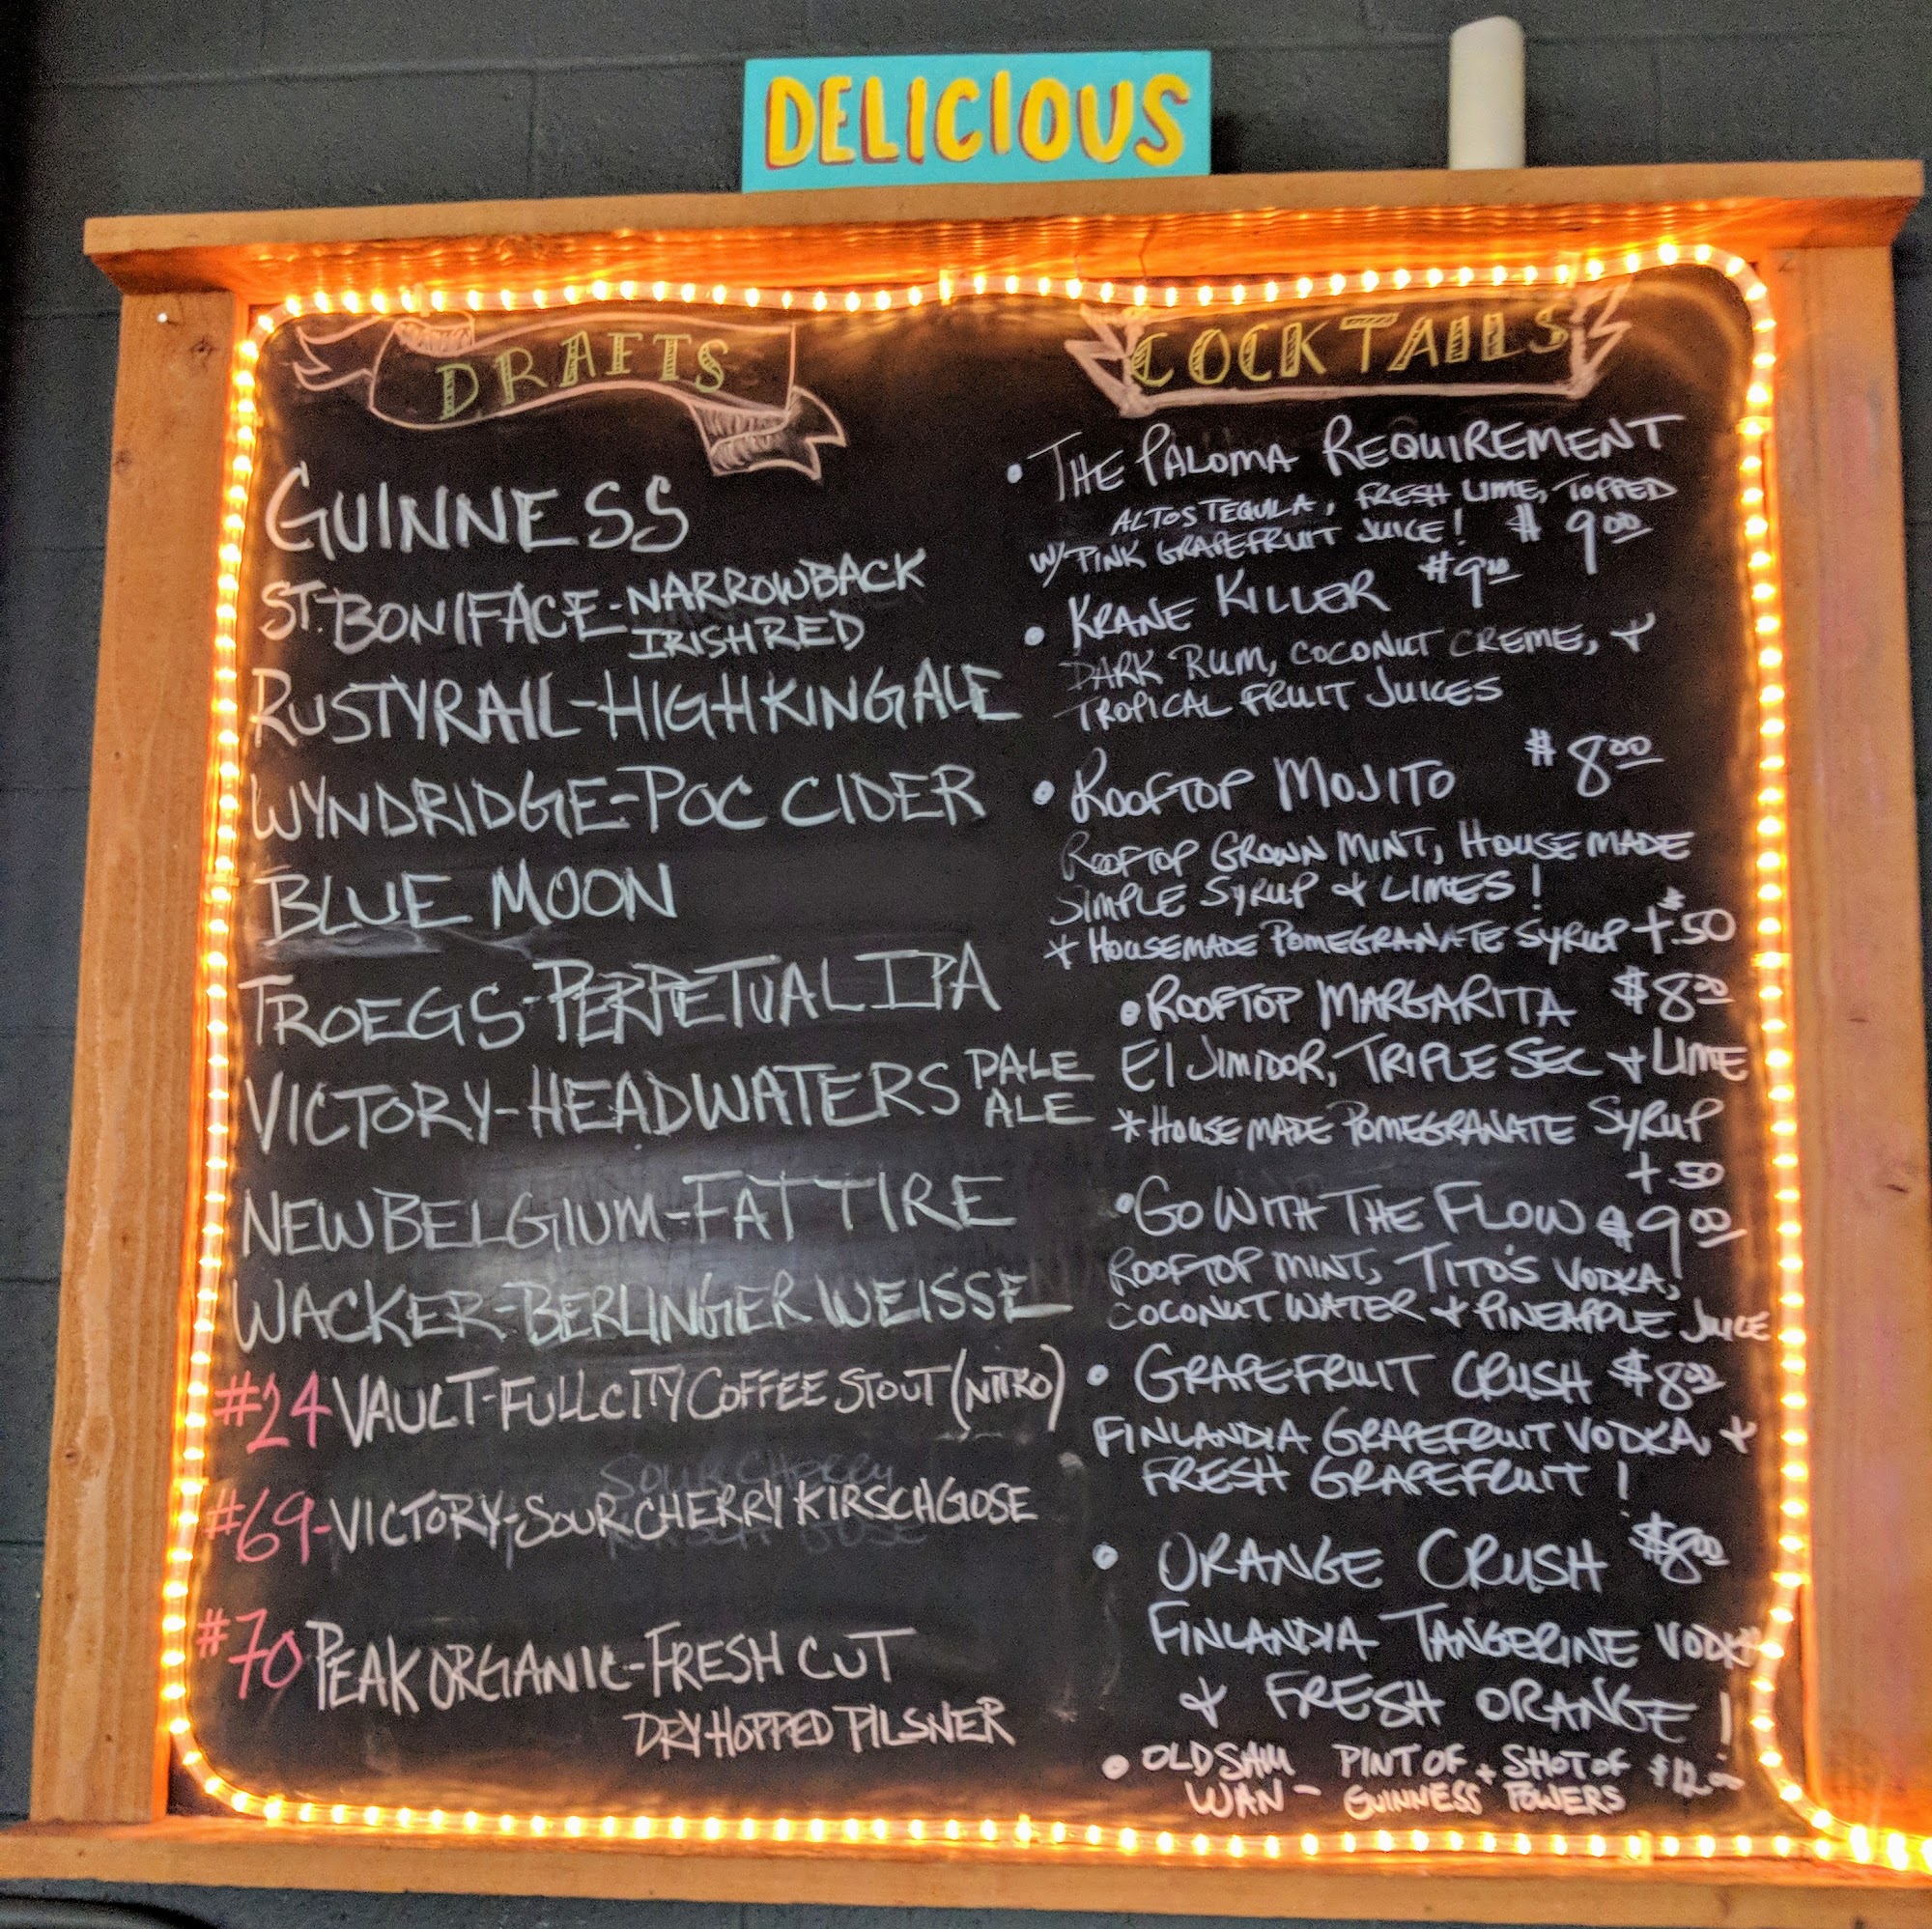 DELICIOUS
DRAFTS
GUINNESS
ST. BONIFACE - NARROWBACK
IRISH RED
RUSTYRAIL - HIGH KING ALE
WYNDRIDGE - POC CIDER
BLUE MOON
TROEGS - PERPETUAL IPA
VICTORY - HEADWATERS PALE
ALE
NEW BELGIUM - FAT TIRE
WACKER - BERLINGER WEISSE
#24 VAULT - FULL CITY COFFEE STOUT (NITRO)
SOUR CHERRY
#69 - VICTORY - SOUR CHERRY KIRSCH GOSE
KIRSCH GOSE
#70 PEAK ORGANIC - FRESH CUT
DRY HOPPED PILSNER
COCKTAILS
• THE PALOMA REQUIREMENT
ALTOS TEQUILA, FRESH LIME, TOPPED
W/ PINK GRAPEFRUIT JUICE! $9.00
• KRANE KILLER $9.00
DARK RUM, COCONUT CREME, +
TROPICAL FRUIT JUICES
• ROOFTOP MOJITO $8.00
ROOFTOP GROWN MINT, HOUSEMADE
SIMPLE SYRUP + LIMES!
* HOUSEMADE POMEGRANATE SYRUP +$.50
• ROOFTOP MARGARITA $8.00
El JIMIDOR, TRIPLE SEC + LIME
* HOUSEMADE POMEGRANATE SYRUP
+ 50
• GO WITH THE FLOW $9.00
ROOFTOP MINT, TITO'S VODKA,
COCONUT WATER + PINEAPPLE JUICE
• GRAPEFRUIT CRUSH $8.00
FINLANDIA GRAPEFRUIT VODKA, +
FRESH GRAPEFRUIT!
• ORANGE CRUSH $8.00
FINLANDIA TANGERINE VODKA
+ FRESH ORANGE!
• OLD SAM PINT OF + SHOT OF $12.00
WAN - GUINNESS POWERS